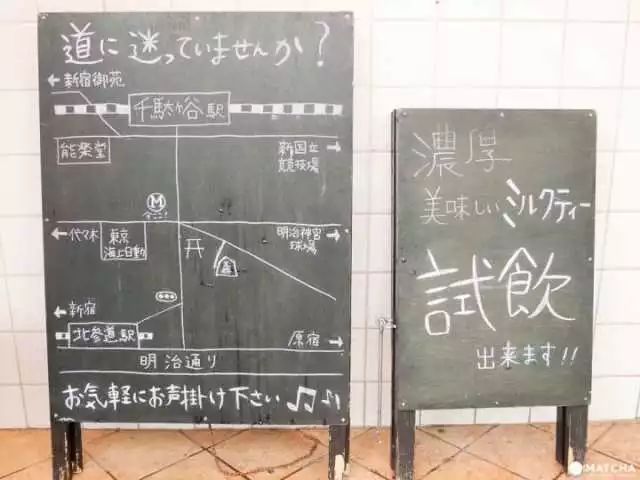 道に迷っていませんか?
←新宿御苑
千駄ヶ谷駅
能楽堂
新国立
競技場→
M
今ココ!
←代々木
東京
海上日動
明治神宮
球場→
←新宿
北参道駅
原宿→
明治通り
お気軽にお声掛け下さい♫♪
濃厚
美味しいミルクティー
試飲
出来ます!!
MATCHA